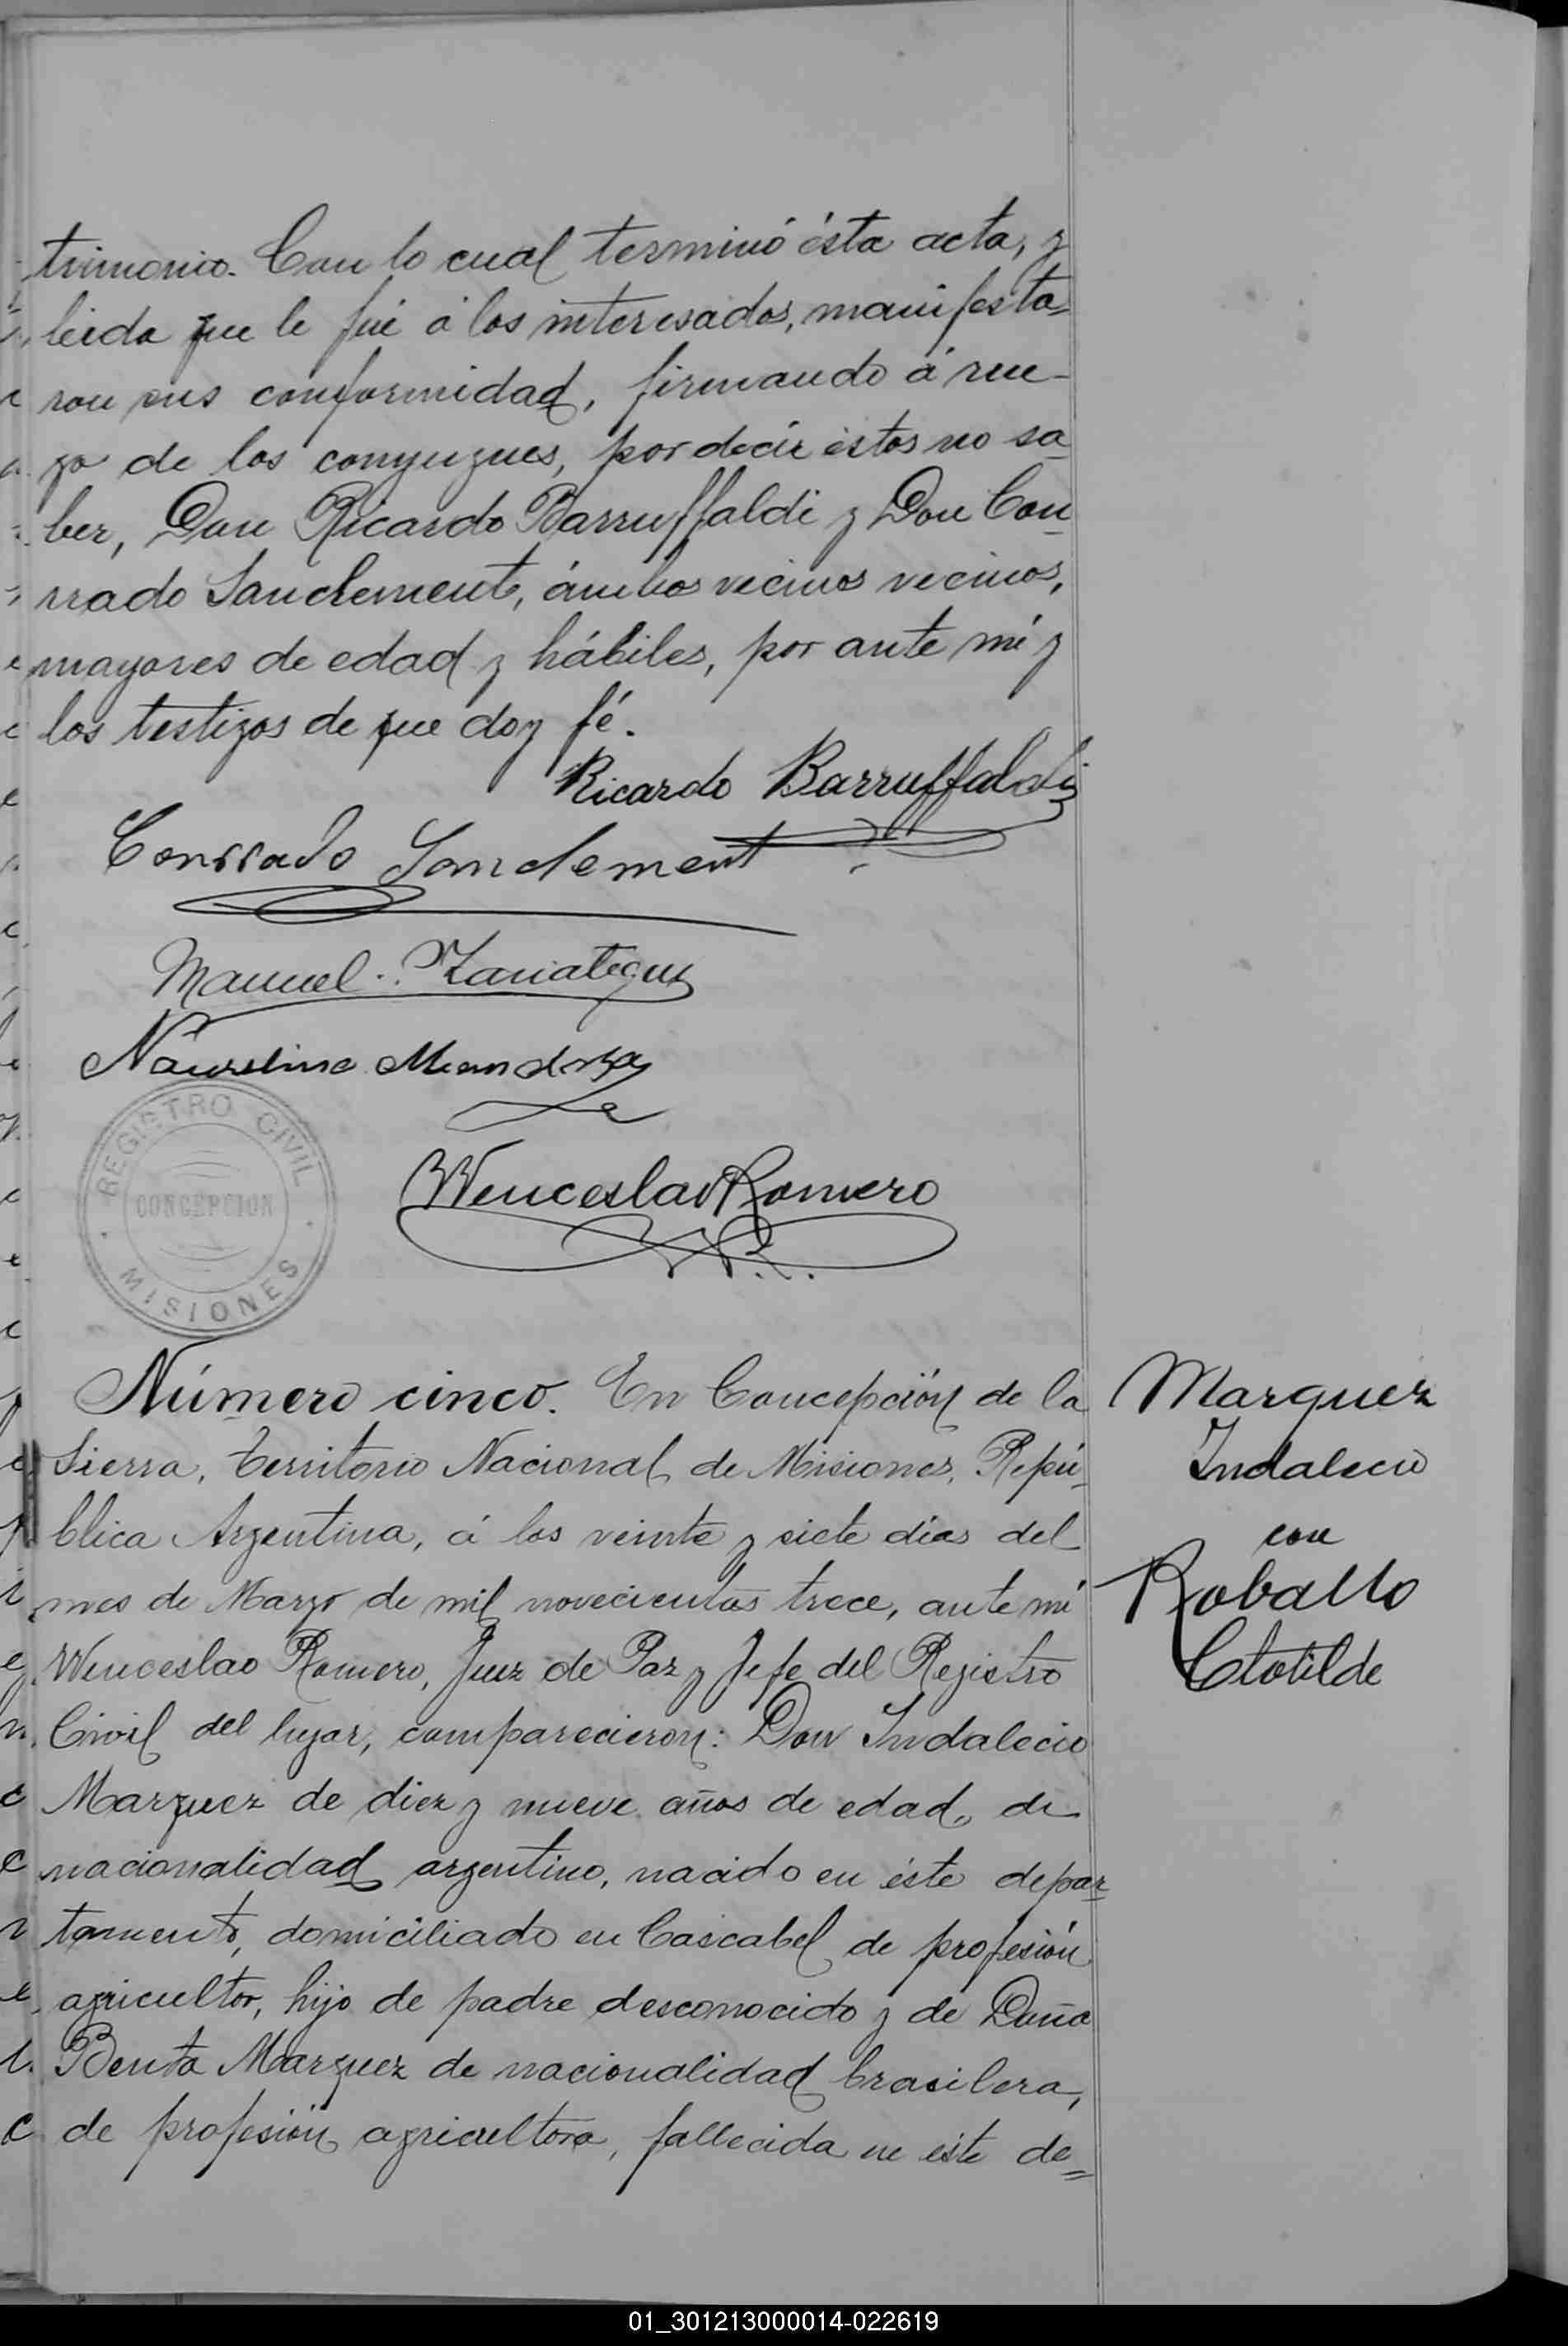 trimonio. Con lo cual terminó ésta acta, y
leida que le fué á los interesados, manifesta-
ron sus conformidad, firmando á rue-
go de los conyugues, por decir éstos no sa-
ber, Don Ricardo Barruffaldi y Don Con-
rrado Sanclement, ámbos vecinos vecinos,
mayores de edad y hábiles, por ante mí y
los testigos de que doy fé.
Ricardo Barruffaldi
Conrrado Sanclement
Manuel
Mendoza
REGISTRO CIVIL
CONCEPCION
MISIONES
Wenceslao Romero
Número cinco. En Concepción de la
Sierra, Territorio Nacional de Misiones, Repú-
blica Argentina, á los veinte y siete dias del
mes de Marzo de mil novecientos trece, ante mí
Wenceslao Romero, Juez de Paz y Jefe del Registro
Civil del lugar, comparecieron: Don Indalecio
Marquez de diez y nueve años de edad, de
nacionalidad argentino, nacido en éste depar-
tamento, domiciliado en Cascabel de profesión
agricultor, hijo de padre desconocido y de Doña
Benta Marquez de nacionalidad brasilera,
de profesión agricultora, fallecida en éste de=
Marquez
Indalecio
con
Roballo
Clotilde
01_301213000014-022619